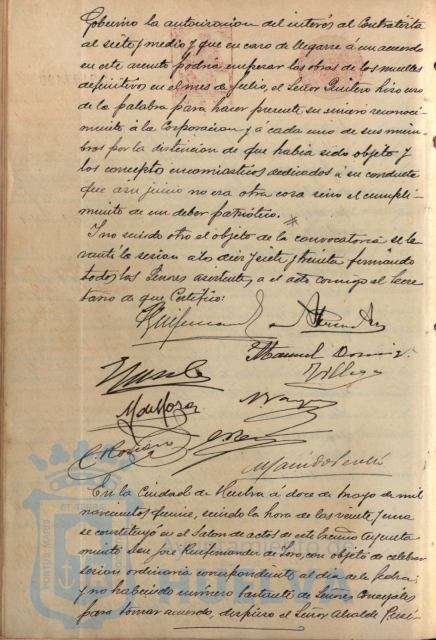 Gobierno la autorizacion del interés al Contratista
al siete y medio y que en caso de llegarse á un acuerdo
en este asunto podria empezar las obras de los muelles
definitivos en el mes de Julio, el Señor Quintero hizo uso
de la palabra para hacer presente su sincero reconoci-
miento á la Corporacion y á cada uno de sus miem-
bros por la distincion de que habia sido objeto y
los conceptos encomiasticos dedicados á su conducta
que a su juicio no era otra cosa sino el cumpli-
miento de un deber patriótico.
Y no siendo otro el objeto de la convocatoria se le-
vantó la sesion a las diez y siete y treinta firmando
todos los Señores asistentes a el acto conmigo el Secre-
tario de que Certifico:
Manuel Domin
En la Ciudad de Huelva á doce de Mayo de mil
novecientos quince, siendo la hora de las veinte y una
se constituyó en el Salon de actos de este Excmo Ayunta-
miento Don José Ruifernandez de Toro, con objeto de celebrar
sesion ordinaria correspondiente al dia de la fecha;
y no habiendo número bastante de Señores Concejales
para tomar acuerdo, dispuso el Señor Alcalde Presi-
PORTUS MARIS